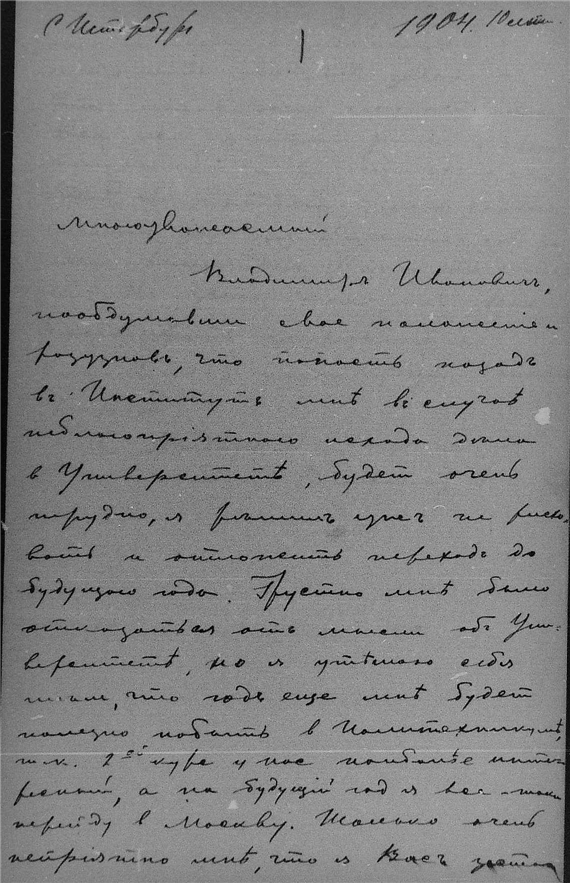 С Петербург 1904. 10 сент.
Многоуважаемый
Владимиръ Ивановичъ,
пообдумавши свое положеніе и
разузнавъ, что попасть назадъ
въ Институтъ мнѣ въ случаѣ
неблагопріятного исхода дѣла
в Университетѣ, будет очень
трудно, я рѣшилъ уже не риско-
вать и отложить переходъ до
будущаго года. Грустно мнѣ было
отказаться отъ мысли об Уни-
верситетѣ, но я утѣшаю себя
тѣмъ, что годъ еще мнѣ будет
полезно побыть в Политехникумѣ,
т. к. 2ой курс у нас наиболѣе инте-
ресный, а на будущій год я все-таки
перейду в Москву. Только очень
непріятно мнѣ, что я Васъ